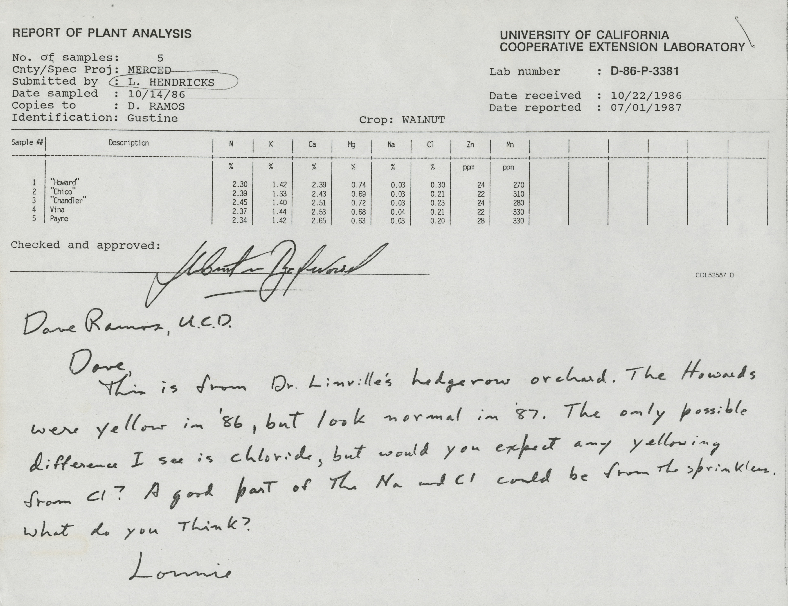 REPORT OF PLANT ANALYSIS
UNIVERSITY OF CALIFORNIA
COOPERATIVE EXTENSION LABORATORY
No. of samples: 5
Cnty/Spec Proj: MERCED
Submitted by : L. HENDRICKS
Date sampled : 10/14/86
Copies to : D. RAMOS
Identification: Gustine
Lab number : D-86-P-3381
Date received : 10/22/1986
Date reported : 07/01/1987
Crop: WALNUT
Sample ## Description N K Ca Mg Na Cl Zn Mn
% % % % % % ppm ppm
1 "Howard" 2.30 1.42 2.39 0.74 0.03 0.30 24 270
2 "Chico" 2.39 1.33 2.43 0.69 0.03 0.21 22 310
3 "Chandler" 2.45 1.40 2.51 0.72 0.03 0.23 24 280
4 Vina 2.37 1.44 2.53 0.68 0.04 0.21 22 330
5 Payne 2.34 1.42 2.65 0.63 0.03 0.20 28 330
Checked and approved:
Dave Ramos, U.C.D.
Dave,
This is from Dr. Linville's hedgerow orchard. The Howards
were yellow in '86, but look normal in '87. The only possible
difference I see is chloride, but would you expect any yellowing
from Cl? A good part of the Na and Cl could be from the sprinklers.
What do you think?
Lonnie